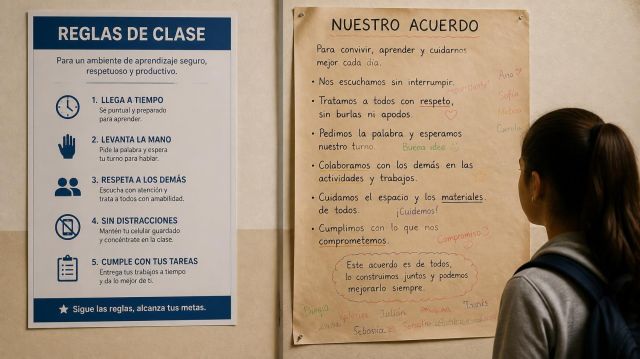 REGLAS DE CLASE
Para un ambiente de aprendizaje seguro,
respetuoso y productivo.
1. LLEGA A TIEMPO
Sé puntual y preparado
para aprender.
2. LEVANTA LA MANO
Pide la palabra y espera
tu turno para hablar.
3. RESPETA A LOS DEMÁS
Escucha con atención y
trata a todos con amabilidad.
4. SIN DISTRACCIONES
Mantén tu celular guardado
y concéntrate en la clase.
5. CUMPLE CON TUS TAREAS
Entrega tus trabajos a tiempo
y da lo mejor de ti.
Sigue las reglas, alcanza tus metas.
NUESTRO ACUERDO
Para convivir, aprender y cuidarnos
mejor cada día.
• Nos escuchamos sin interrumpir.
• Tratamos a todos con respeto,
sin burlas ni apodos.
• Pedimos la palabra y esperamos
nuestro turno.
Buena idea
• Colaboramos con los demás en las
actividades y trabajos.
• Cuidamos el espacio y los materiales
de todos.
¡Cuidemos!
• Cumplimos con lo que nos
comprometemos.
Compromiso
Este acuerdo es de todos,
lo construimos juntos y podemos
mejorarlo siempre.
Ana
Sofía
Camila
Julián